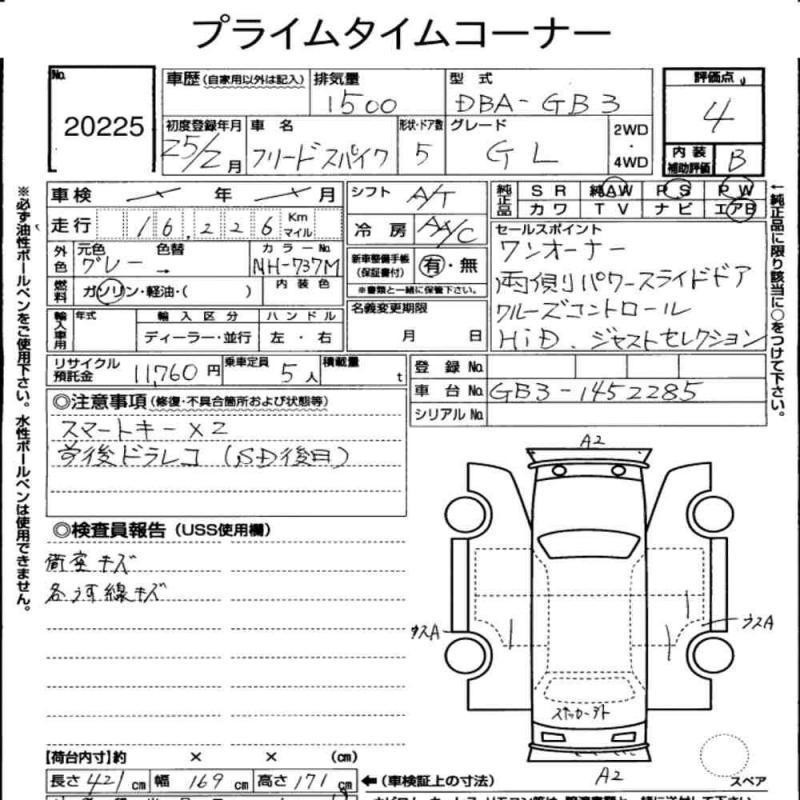 プライムタイムコーナー
No. 20225
車歴 (自家用以外は記入) 排気量 1500 型式 DBA-GB3 評価点 4
初度登録年月 25/2月 車名 フリードスパイク 形状・ドア数 5 グレード GL 2WD・4WD 内装補助評価 B
※必ず油性ボールペンをご使用下さい。水性ボールペンは使用できません。
車検 年 月 シフト A/T 純正品 SR 純AW PS PW
走行 16,226 Km マイル 冷房 AA/C カワ TV ナビ エアB
←純正品に限り該当に○をつけて下さい。
外色 元色 グレー → 色替 カラーNo. NH-737M 新車整備手帳(保証書付) 有・無 ※書類と一緒に保管下さい。
燃料 ガソリン・軽油・( ) 内装色 名義変更期限 月 日
輸入車用 年式 輸入区分 ディーラー・並行 ハンドル 左・右
セールスポイント
ワンオーナー
両側パワースライドドア
クルーズコントロール
HiD、ジャストセレクション
リサイクル預託金 11,760円 乗車定員 5人 積載量 t
登録No.
車台No. GB3-1452285
シリアルNo.
◎注意事項 (修復・不具合箇所および状態等)
スマートキー×2
ドラレコ (SD後日)
◎検査員報告 (USS使用欄)
キズ
各うす線キズ
A2
ウスA
ウスA
A2
スペア
【荷台内寸】約 × × (cm)
長さ 421cm 幅 169cm 高さ 171cm ←(車検証上の寸法)